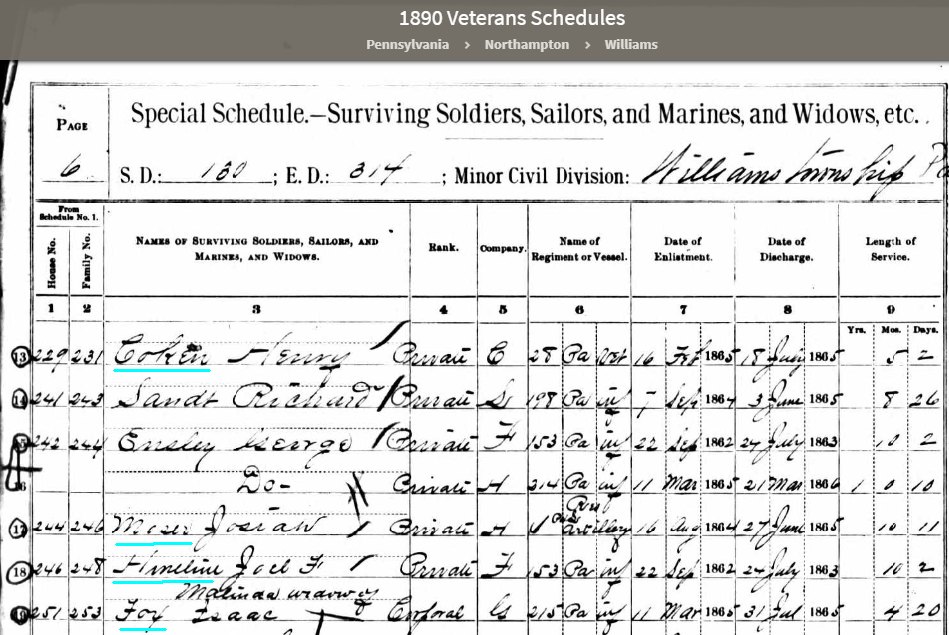 1890 Veterans Schedules
Pennsylvania > Northampton > Williams
Special Schedule.—Surviving Soldiers, Sailors, and Marines, and Widows, etc.
PAGE
6 S. D.: 130; E. D.: 314; Minor Civil Division: Williams township Pa
From Schedule No. 1.
House No. Family No. NAMES OF SURVIVING SOLDIERS, SAILORS, AND MARINES, AND WIDOWS. Rank. Company. Name of Regiment or Vessel. Date of Enlistment. Date of Discharge. Length of Service.
1 2 3 4 5 6 7 8 9
Yrs. Mos. Days.
13 229 231 Henry Private C 28 Pa 16 Feb 1865 18 July 1865 5 2
14 241 243 Sandt Richard Private 198 Pa inf 7 Sep 1864 3 June 1865 8 26
242 244 Ensley George Private F 153 Pa inf 22 Sep 1862 24 July 1863 10 2
16 Do- Private A 214 Pa inf 11 Mar 1865 21 Mar 1866 1 0 10
17 244 246 Moser Josiah Private A 1 Artillery 16 Aug 1864 27 June 1865 10 11
18 246 248 Hineline Joel F Private F 153 Pa inf 22 Sep 1862 24 July 1863 10 2
Malinda widow of
19 251 253 Fox Isaac Corporal G 215 Pa inf 11 Mar 1865 31 Jul 1865 4 20